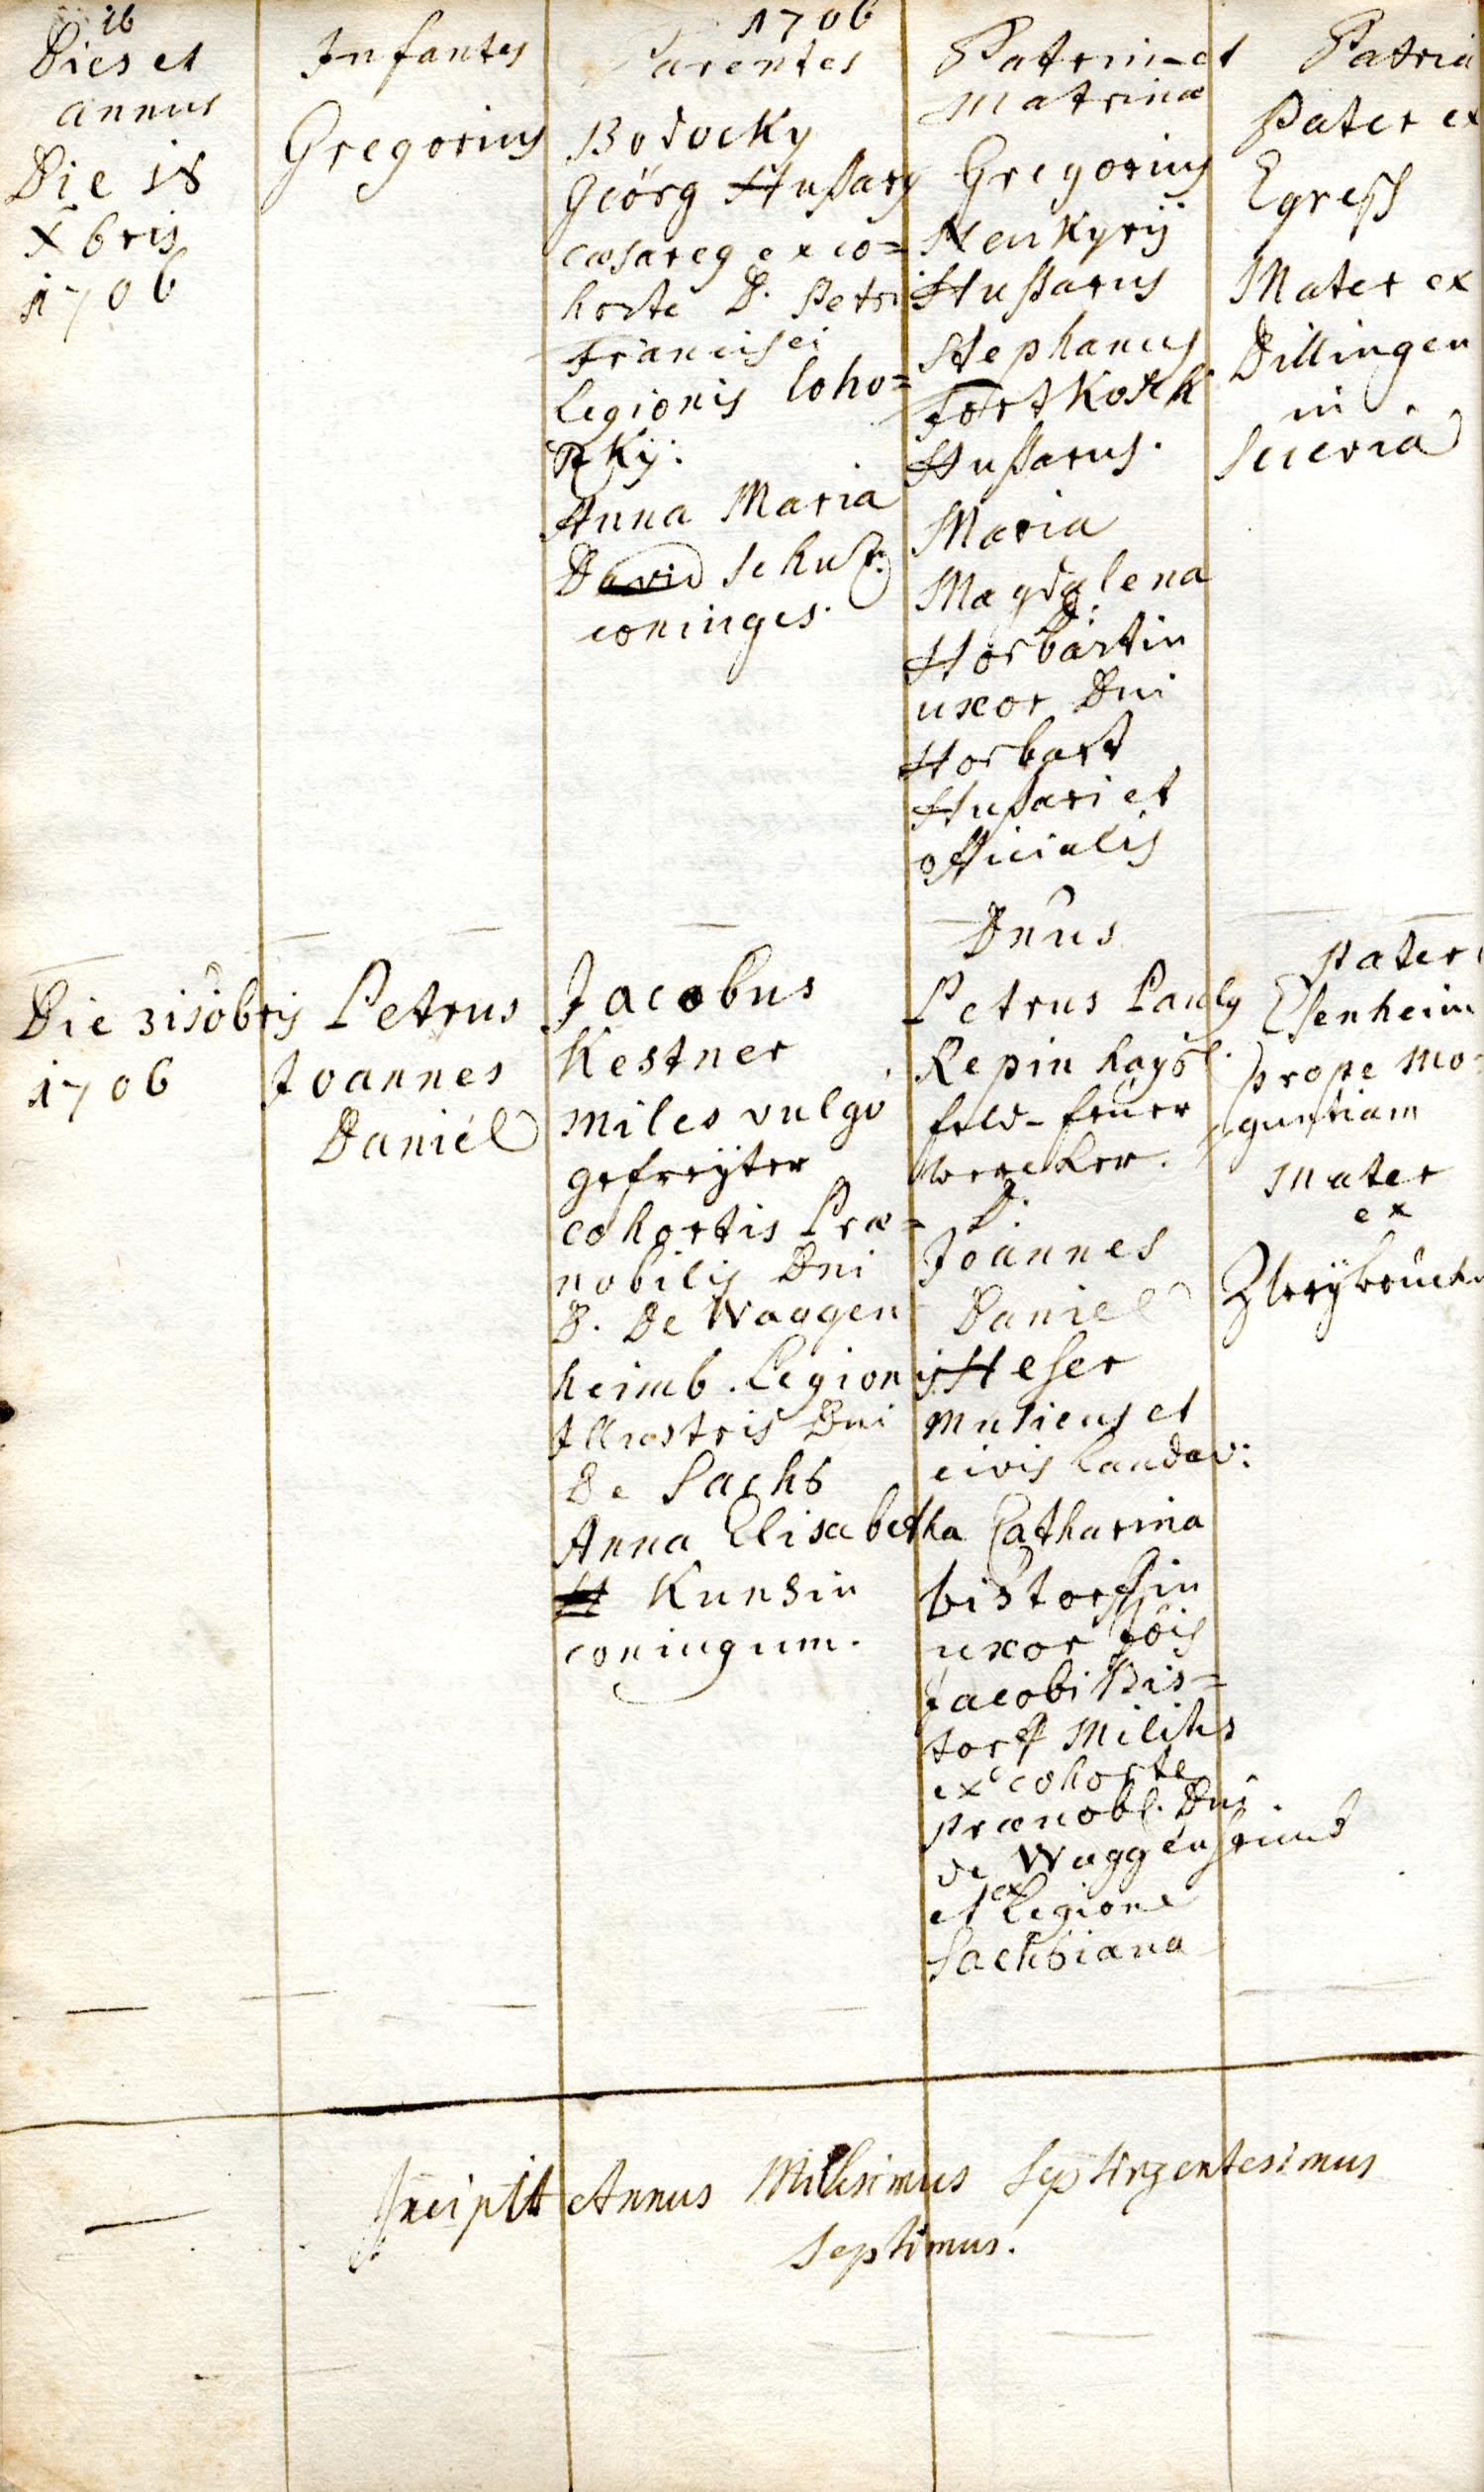 16
1706
Dies et
annus
Infantes
Parentes
Patrini et
Matrinæ
Patria
Die 18
Xbris
1706
Gregorius
Bodocky
Geörg Hußarg
cæsareg ex co=
horte D. Petri
Francisci
legionis loho=
Anna Maria
David Schuz
coniuges.
Gregorius
Nenkyrij
Hußarus
Stephanus
Hußarus.
Maria
Magdalena
Horbartin
uxor Dni
Horbart
Hußari et
officialis
Pater ex
Egreß
Mater ex
Dillingen
in
Suevia
Die 31 Xbris
1706
Petrus
Joannes
Daniel
Jacobus
Kestner
Miles vulgo
gefreÿter
cohortis Præ=
nobilis Dni
D. De Waagen
heimb. Legionis
Illustris Dni
De Sachs
Anna Elisabetha
Kunsin
coniugum.
Dnus
Petrus Pauly
Repin kays.
feld-feuer
wercker.
D.
Joannes
Daniel
Heser
Musicus et
civis Landav:
Catharina
bistorffin
uxor Jois
Jacobi Bis=
torff Militis
ex cohorte
prænobl. Dni.
de Waggenheimb
et ex Legione
Sachsiana
Pater
Esenheim
prope Mo=
guntiam
Mater
ex
Zweÿbrück
Incipit Annus Millesimus Septingentesimus
Septimus.